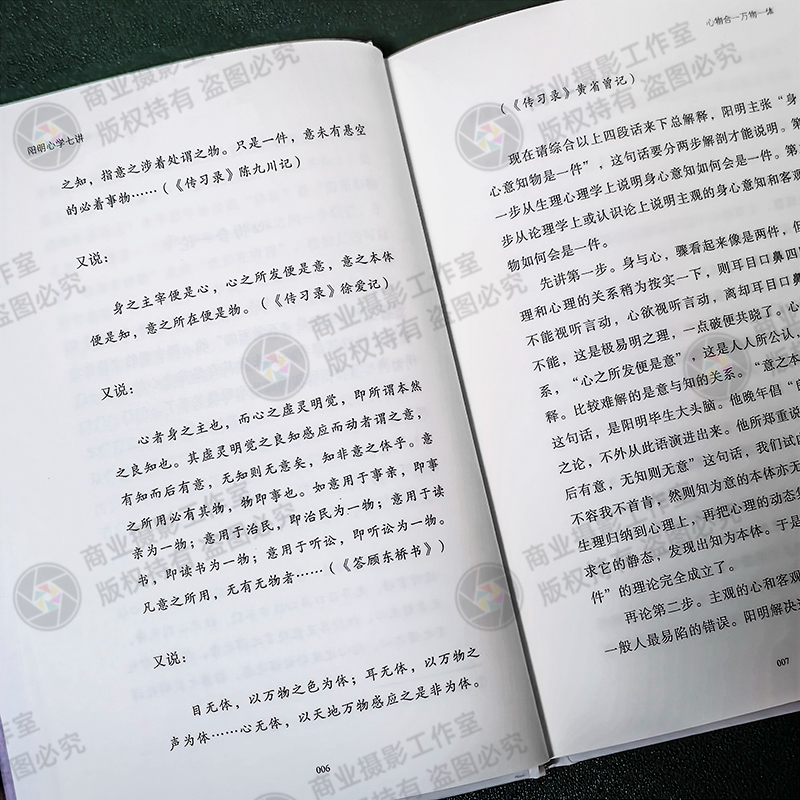 阳明心学七讲
之知，指意之涉着处谓之物。只是一件，意未有悬空
的必着事物……（《传习录》陈九川记）
又说：
身之主宰便是心，心之所发便是意，意之本体
便是知，意之所在便是物。（《传习录》徐爱记）
又说：
心者身之主也，而心之虚灵明觉，即所谓本然
之良知也。其虚灵明觉之良知感应而动者谓之意，
有知而后有意，无知则无意矣，知非意之体乎。意
之所用必有其物，物即事也。如意用于事亲，即事
亲为一物；意用于治民，即治民为一物；意用于读
书，即读书为一物；意用于听讼，即听讼为一物。
凡意之所用，无有无物者……（《答顾东桥书》）
又说：
目无体，以万物之色为体；耳无体，以万物之
声为体……心无体，以天地万物感应之是非为体。
006
心物合一万物一体
（《传习录》黄省曾记）
现在请综合以上四段话来下总解释，阳明主张“身
心意知物是一件”，这句话要分两步解剖才能说明。第
一步从生理心理学上说明身心意知如何会是一件。第
步从论理学上或认识论上说明主观的身心意知和客
物如何会是一件。
先讲第一步。身与心，骤看起来像是两件，但
理和心理的关系稍为按实一下，则耳目口鼻四
不能视听言动，心欲视听言动，离却耳目口鼻
不能，这是极易明之理，一点破便共晓了。心
系，“心之所发便是意”，这是人人所公认，
释。比较难解的是意与知的关系。“意之本
这句话，是阳明毕生大头脑。他晚年倡“
之论，不外从此语演进出来。他所郑重说
后有意，无知则无意”这句话，我们试
不容我不首肯，然则知为意的本体亦无
生理归纳到心理上，再把心理的动态集
求它的静态，发现出知为本体。于是
件”的理论完全成立了。
再论第二步。主观的心和客观
一般人最易陷的错误。阳明解决
007
商业摄影工作室
版权持有 盗图必究
商业摄影工作室
版权持有 盗图必究
商业摄影工作室
版权持有 盗图必究
商业摄影工作室
版权持有 盗图必究
商业摄影工作室
版权持有 盗图必究
商业摄影工作室
版权持有 盗图必究